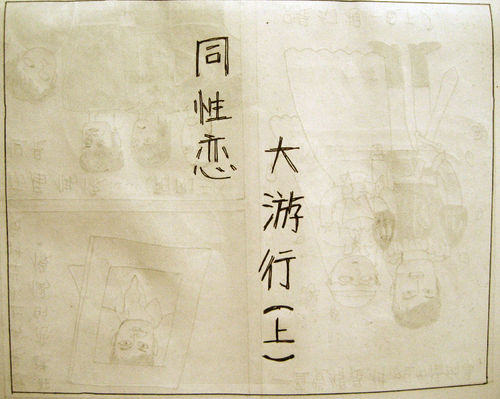 同性恋
大游行(上)